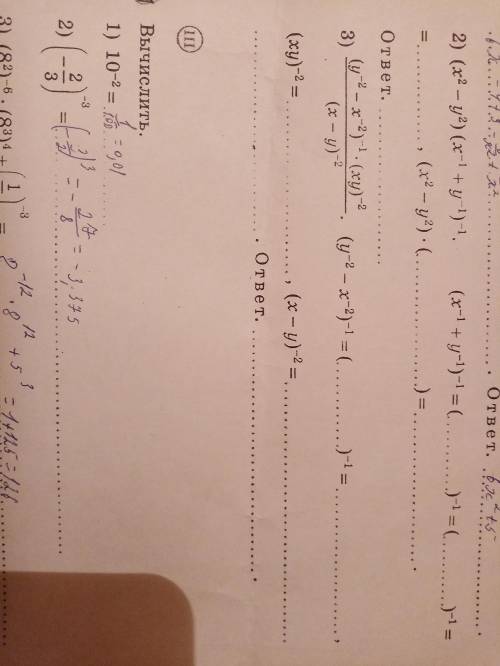 Ответ. 6x² + 5
2) (x² − y²)(x⁻¹ + y⁻¹)⁻¹. (x⁻¹ + y⁻¹)⁻¹ = (..........)⁻¹ = (..........)⁻¹ =
= .............., (x² − y²) · (....................) = ....................
Ответ. ....................
3) (y⁻² − x⁻²)⁻¹ · (xy)⁻² / (x − y)⁻². (y⁻² − x⁻²)⁻¹ = (..............)⁻¹ = ....................,
(xy)⁻² = ........................., (x − y)⁻² = ...................................
................................. . Ответ. ................................... .
III
Вычислить.
1) 10⁻² = 1/100 = 0,01
2) (−2/3)⁻³ = (−3/2)³ = −27/8 = −3,375
3) (8²)⁻⁶ · (8³)⁴ + (1/ )⁻³ = 8⁻¹² · 8¹² + 5³ = 1+125=126